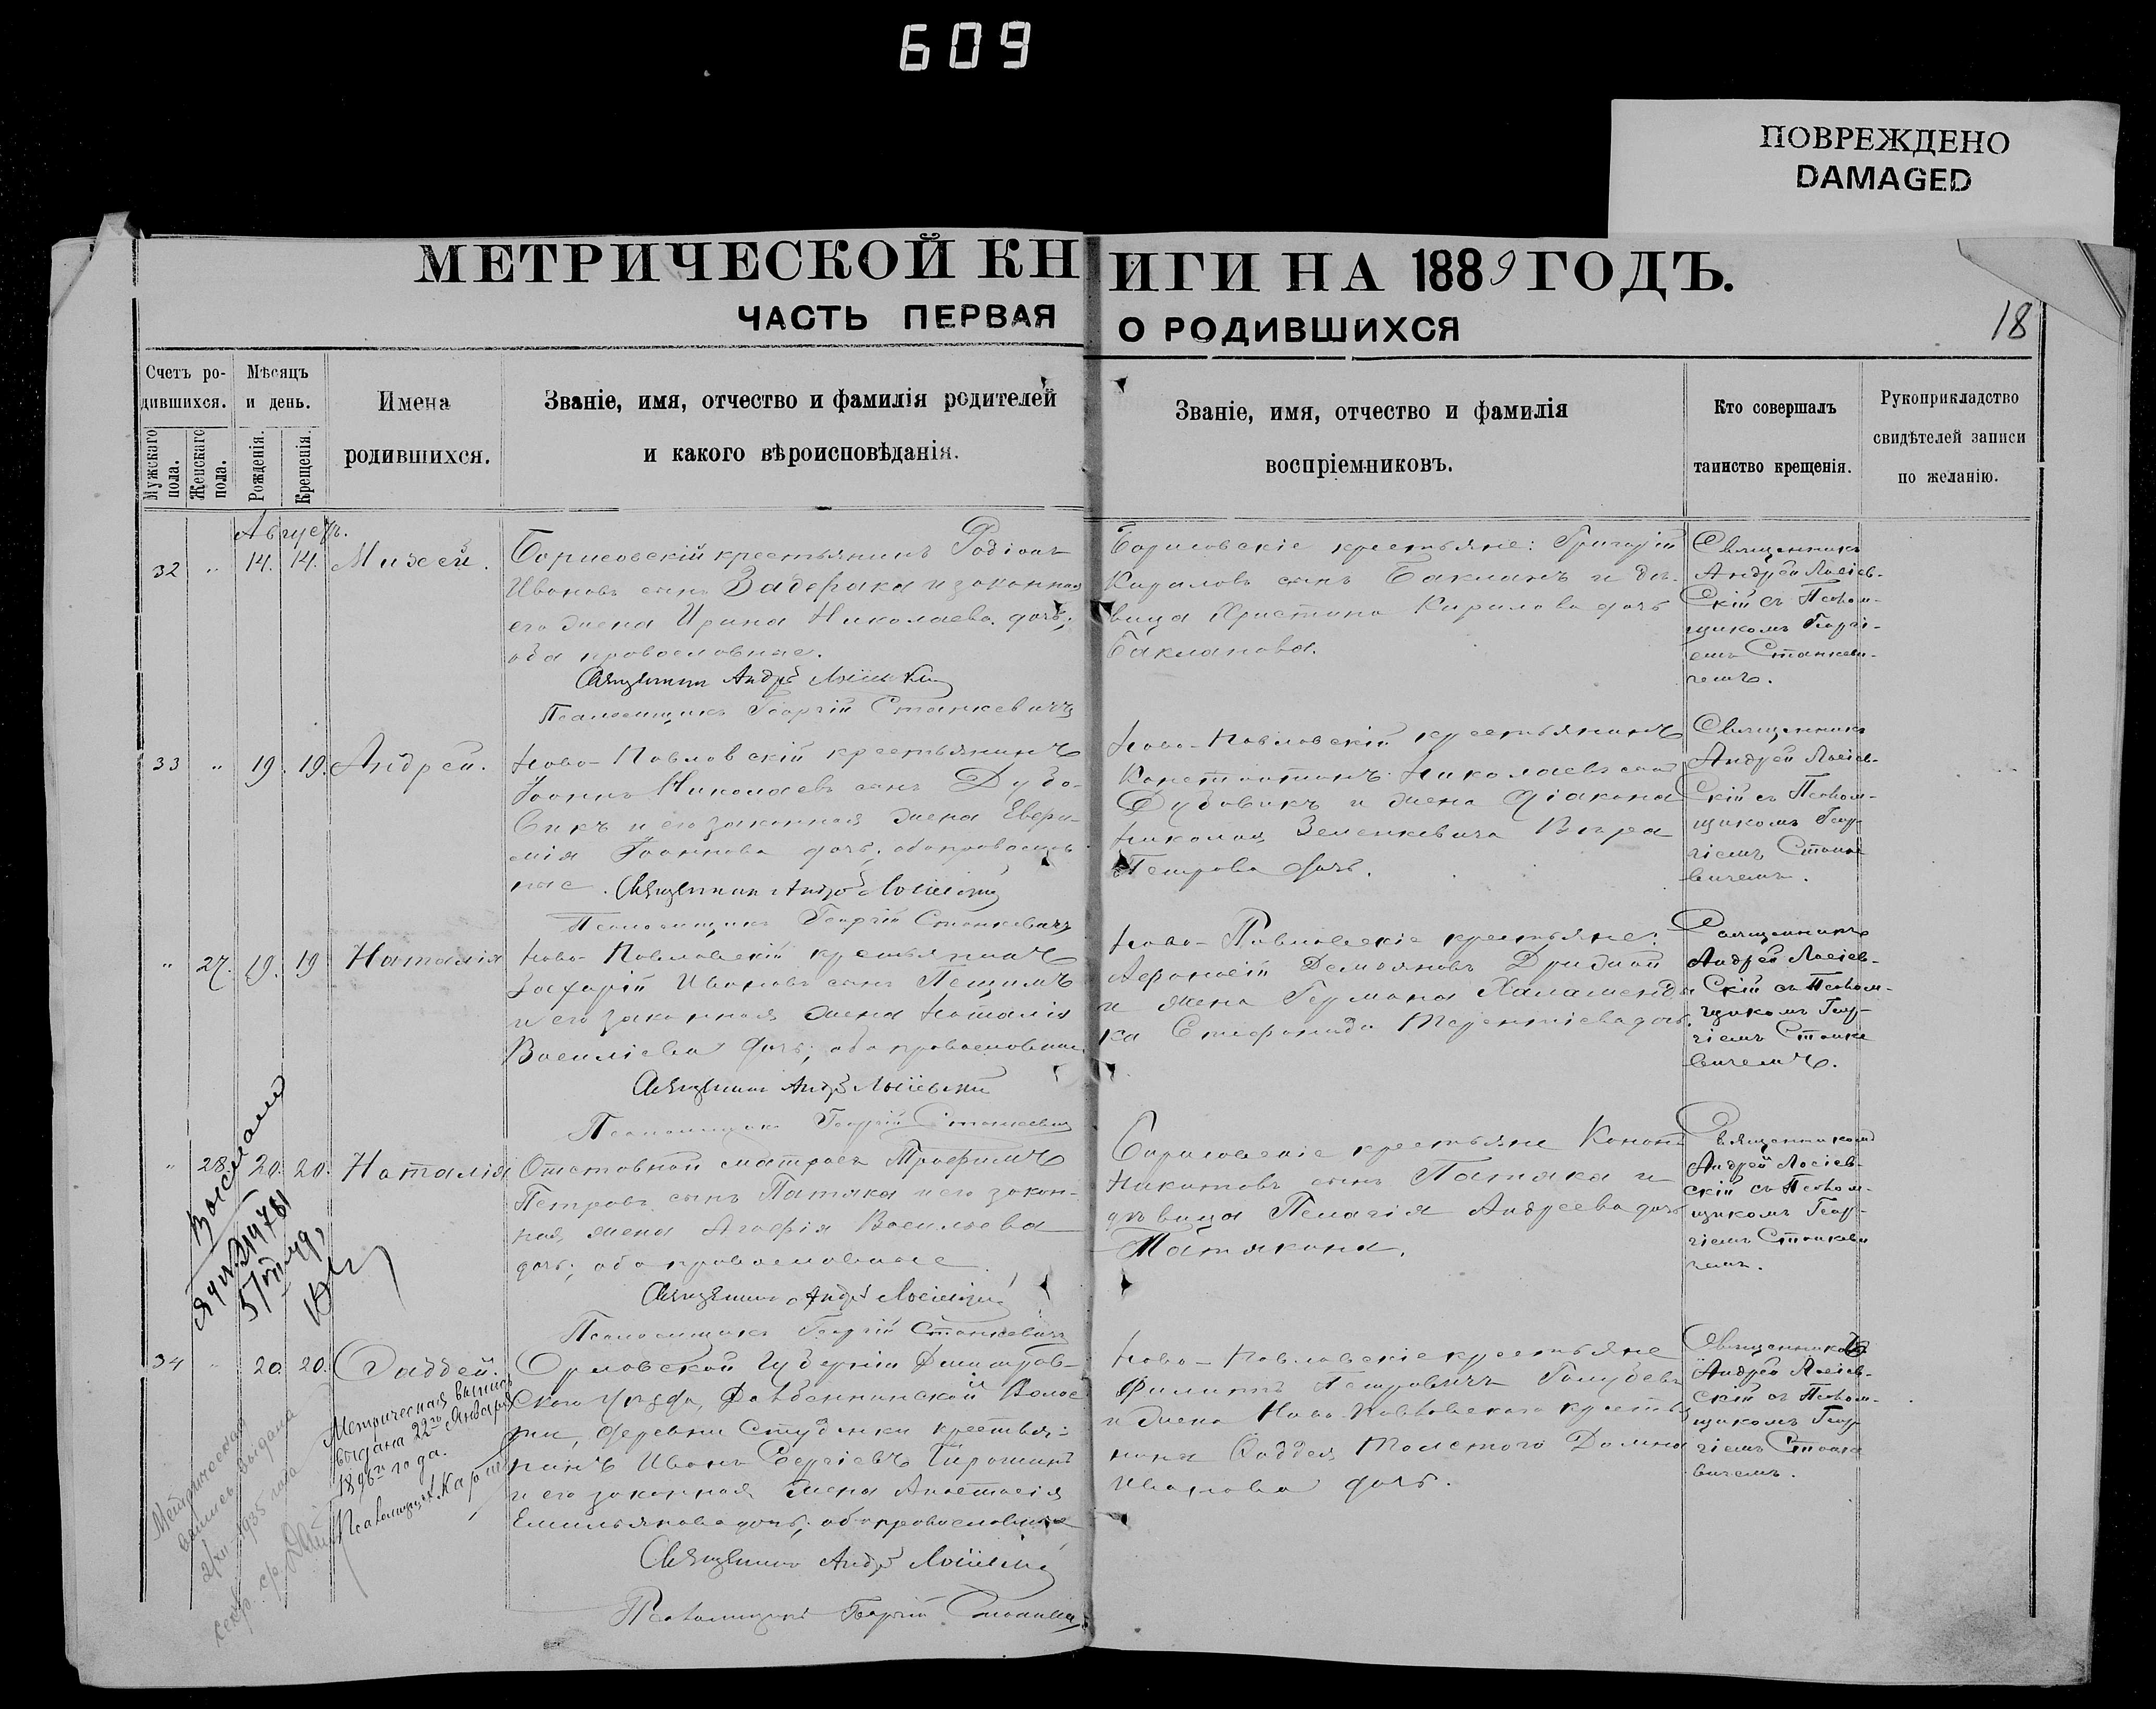 609
ПОВРЕЖДЕНО
DAMAGED
МЕТРИЧЕСКОЙ КНИГИ НА 1889 ГОДЪ.
ЧАСТЬ ПЕРВАЯ О РОДИВШИХСЯ
18
Счетъ ро-
дившихся.
Мужскаго пола.
Женскаго пола.
Мѣсяцъ
и день.
Рожденія.
Крещенія.
Имена
родившихся.
Званіе, имя, отчество и фамилія родителей
и какого вѣроисповѣданія.
Званіе, имя, отчество и фамилія
воспріемниковъ.
Кто совершалъ
таинство крещенія.
Рукоприкладство
свидѣтелей записи
по желанію.
Августъ.
32 " 14. 14. Михей.
Борисовскій крестьянинъ Родіонъ
Ивановъ сынъ Задерака и законная
его жена Ирина Николаева дочь;
оба православные.
Священникъ Андрей Лосіевскій
Псаломщикъ Георгій Станкевичъ
Борисовскіе крестьяне: Григорій
Кириловъ сынъ Бакланъ и дѣ-
вица Христина Кирилова дочь
Бакланова.
Священникъ
Андрей Лосіев-
скій съ Псалом-
щикомъ Георгі-
емъ Станкеви-
чемъ.
33 " 19. 19. Андрей.
Ново-Павловскій крестьянинъ
Іоаннъ Николаевъ сынъ Дубо-
викъ и его законная жена Евфи-
мія Іоаннова дочь; оба православ-
ные. Священникъ Андрей Лосіевскій
Псаломщикъ Георгій Станкевичъ
Ново-Павловскій крестьянинъ
Константинъ Николаевъ сынъ
Дубовикъ и жена Діакона
Николая Зеленкевича Вѣра
Петрова дочь.
Священникъ
Андрей Лосіев-
скій съ Псалом-
щикомъ Геор-
гіемъ Станке
вичемъ.
" 27. 19. 19 Наталія
Ново-Павловскій крестьянинъ
Захарій Ивановъ сынъ
и его законная жена Наталія
Василіева дочь; оба православные.
Священникъ Андрей Лосіевскій
Псаломщикъ Георгій Станкевичъ
Ново-Павловскіе крестьяне:
Афанасій Демьяновъ
и жена Германа
ка Стефанида Терентіева дочь.
Священникъ
Андрей Лосіев-
скій съ Псалом-
щикомъ Геор-
гіемъ Станке
вичемъ.
" 28. 20. 20. Наталія
Отставной матросъ Трофимъ
Петровъ сынъ Патяка и его закон-
ная жена Агафія Васильева
дочь; оба православные
Священникъ Андрей Лосіевскій
Псаломщикъ Георгій Станкевичъ
Борисовскіе крестьяне Кононъ
Никитовъ сынъ Патяка и
дѣвица Пелагія Андреева дочь
Патякина.
Священникъ
Андрей Лосіев-
скій съ Псалом-
щикомъ Геор-
гіемъ Станкеви
чемъ.
34 " 20. 20. Фаддей.
Орловской Губерніи Дмитров-
скаго Уѣзда, Волос
ти, деревни Студенки крестья-
нинъ Иванъ Сергіевъ
и его законная жена Анастасія
Емильянова дочь; оба православные
Священникъ Андрей Лосіевскій
Псаломщикъ Георгій Станкевичъ
Ново-Павловскіе крестьяне
Филиппъ Петровичъ Голубевъ
и жена Ново-Павловскаго крестья
нина Фаддея Толстого Домна
Иванова дочь.
Священникъ
Андрей Лосіев-
скій съ Псалом-
щикомъ Геор-
гіемъ Станке
вичемъ.
Метрическая выпись
выдана 22го Января
1896го года.
Псаломщикъ
Метрическая
выпись выдана
2/XII 1935 года